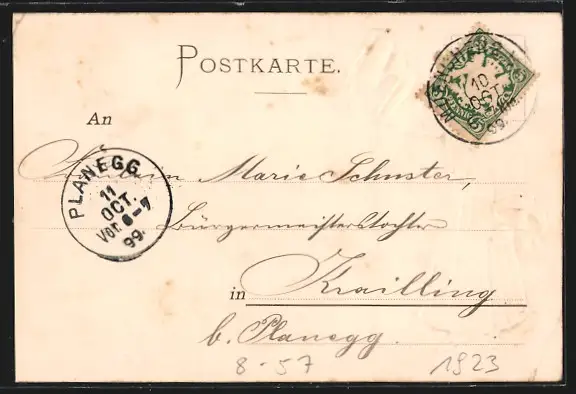 POSTKARTE.
MÜNCHEN
10
OCT.
99.
An
PLANEGG
11
OCT.
Vor. 6-7
99.
Fräulein Marie Schuster,
Bürgermeisterstochter
in Krailling
b. Planegg.
8-57 1923